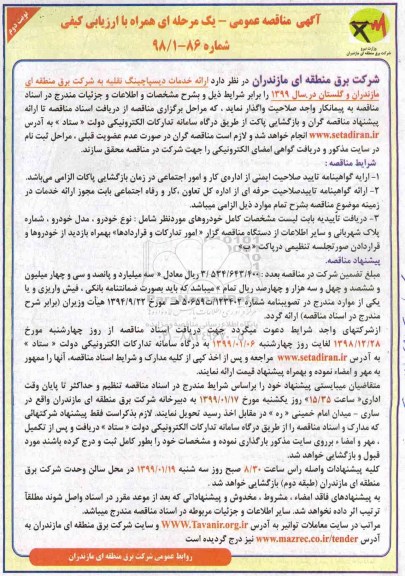 نوبت دوم
آگهی مناقصه عمومی – یک مرحله ای همراه با ارزیابی کیفی
شماره ۸۶-۹۸/۱
وزارت نیرو
شرکت برق منطقه ای مازندران
شرکت برق منطقه ای مازندران در نظر دارد ارائه خدمات دیسپاچینگ نقلیه به شرکت برق منطقه ای
مازندران و گلستان در سال ۱۳۹۹ را برابر شرایط ذیل و بشرح مشخصات و اطلاعات و جزئیات مندرج در اسناد
مناقصه به پیمانکار واجد صلاحیت واگذار نماید ، که مراحل برگزاری مناقصه از دریافت اسناد مناقصه تا ارائه
پیشنهاد مناقصه گران و بازگشایی پاکت از طریق درگاه سامانه تدارکات الکترونیکی دولت « ستاد » به آدرس
www.setadiran.ir انجام خواهد شد و لازم است مناقصه گران در صورت عدم عضویت قبلی ، مراحل ثبت نام
در سایت مذکور و دریافت گواهی امضای الکترونیکی را جهت شرکت در مناقصه محقق سازند.
شرایط مناقصه :
۱- ارایه گواهینامه تایید صلاحیت ایمنی از اداره‌ی کار و امور اجتماعی در زمان بازگشایی پاکات الزامی می‌باشد.
۲- ارائه گواهینامه تاییدصلاحیت حرفه ای از اداره کل تعاون ،کار و رفاه اجتماعی بابت مجوز ارائه خدمات در
زمینه موضوع مناقصه بشرح تمام موارد ذیل الزامی میباشد.
۳- دریافت تأییدیه بابت لیست مشخصات کامل خودروهای موردنظر شامل : نوع خودرو ، مدل خودرو ، شماره
پلاک شهربانی و سایر اطلاعات از دستگاه مناقصه گزار « امور تدارکات و قراردادها» بهمراه بازدید از خودروها و
قراردادن صورتجلسه تنظیمی درپاکت «ب»
پیشنهاد مناقصه.
مبلغ تضمین شرکت در مناقصه بعدد : ۳/۵۳۴/۶۴۳/۴۰۰ ریال معادل « سه میلیارد و پانصد و سی و چهار میلیون
و ششصد و چهل و سه هزار و چهارصد ریال تمام » میباشد که باید بصورت ضمانتنامه بانکی ، فیش واریزی و یا
یکی از موارد مندرج در تصویبنامه شماره ۱۲۳۴۰۲/ت۵۰۶۵۹ هـ مورخ ۱۳۹۴/۹/۲۲ هیأت وزیران (برابر شرح
مندرج در اسناد مناقصه) ارائه گردد.
ازشرکتهای واجد شرایط دعوت میگردد جهت دریافت اسناد مناقصه از روز چهارشنبه مورخ
۱۳۹۸/۱۲/۲۸ لغایت روز چهارشنبه ۱۳۹۹/۰۱/۰۶ به درگاه سامانه تدارکات الکترونیکی دولت « ستاد »
به آدرس www.setadiran.ir مراجعه و پس از اخذ کپی از کلیه مدارک و شرایط اسناد مناقصه، آنها را ممهور
به مهر و امضاء نموده و بهمراه پیشنهاد قیمت ارائه نمایند.
متقاضیان میبایستی پیشنهاد خود را براساس شرایط مندرج در اسناد مناقصه تنظیم و حداکثر تا پایان وقت
اداری« ساعت ۱۵/۳۵» روز یکشنبه مورخ ۱۳۹۹/۰۱/۱۷ به دبیرخانه شرکت برق منطقه ای مازندران واقع در
ساری - میدان امام خمینی « ره » در مقابل اخذ رسید تحویل نمایند. لازم بذکراست فقط پیشنهاد شرکتهائی
که مدارک و اسناد مناقصه را از طریق درگاه سامانه تدارکات الکترونیکی دولت « ستاد » دریافت و پس از تکمیل
، مهر و امضا ء برروی سایت مذکور بارگذاری نموده و مشخصات خود را بطور کامل ثبت و درج کرده باشند مورد
قبول و بازگشایی خواهد شد.
کلیه پیشنهادات واصله راس ساعت ۸/۳۰ صبح روز سه شنبه ۱۳۹۹/۰۱/۱۹ در محل سالن وحدت شرکت برق
منطقه ای مازندران (طبقه دوم) بازگشایی خواهد شد .
به پیشنهادهای فاقد امضاء ، مشروط ، مخدوش و پیشنهاداتی که بعد از موعد مقرر در اسناد واصل شوند مطلقاً
ترتیب اثر داده نخواهد شد. سایر اطلاعات و جزئیات مربوطه در اسناد مناقصه مندرج میباشد.
مراتب در سایت معاملات توانیر به آدرس WWW.Tavanir.org.ir و سایت شرکت برق منطقه ای مازندران به
آدرس www.mazrec.co.ir/tender نیز درج گردیده است
روابط عمومی شرکت برق منطقه ای مازندران